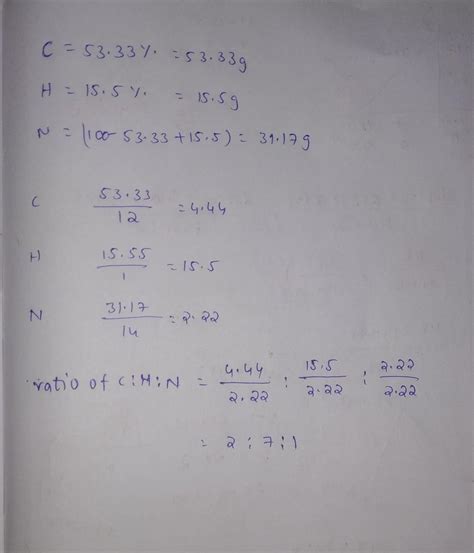 C = 53.33% = 53.33g
H = 15.5% = 15.5g
N = (100 - 53.33 + 15.5) = 31.17g
C 53.33/12 = 4.44
H 15.55/1 = 15.5
N 31.17/14 = 2.22
ratio of C:H:N = 4.44/2.22 : 15.5/2.22 : 2.22/2.22
= 2 : 7 : 1